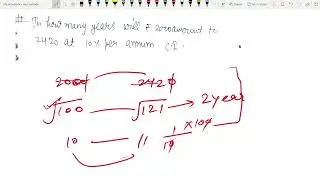 In how many years will ₹ 2000 amount to
2420 at 10% per annum C.I.
2000 — 2420
√100 — √121 → 2 year
10 — 11 1/10 × 100